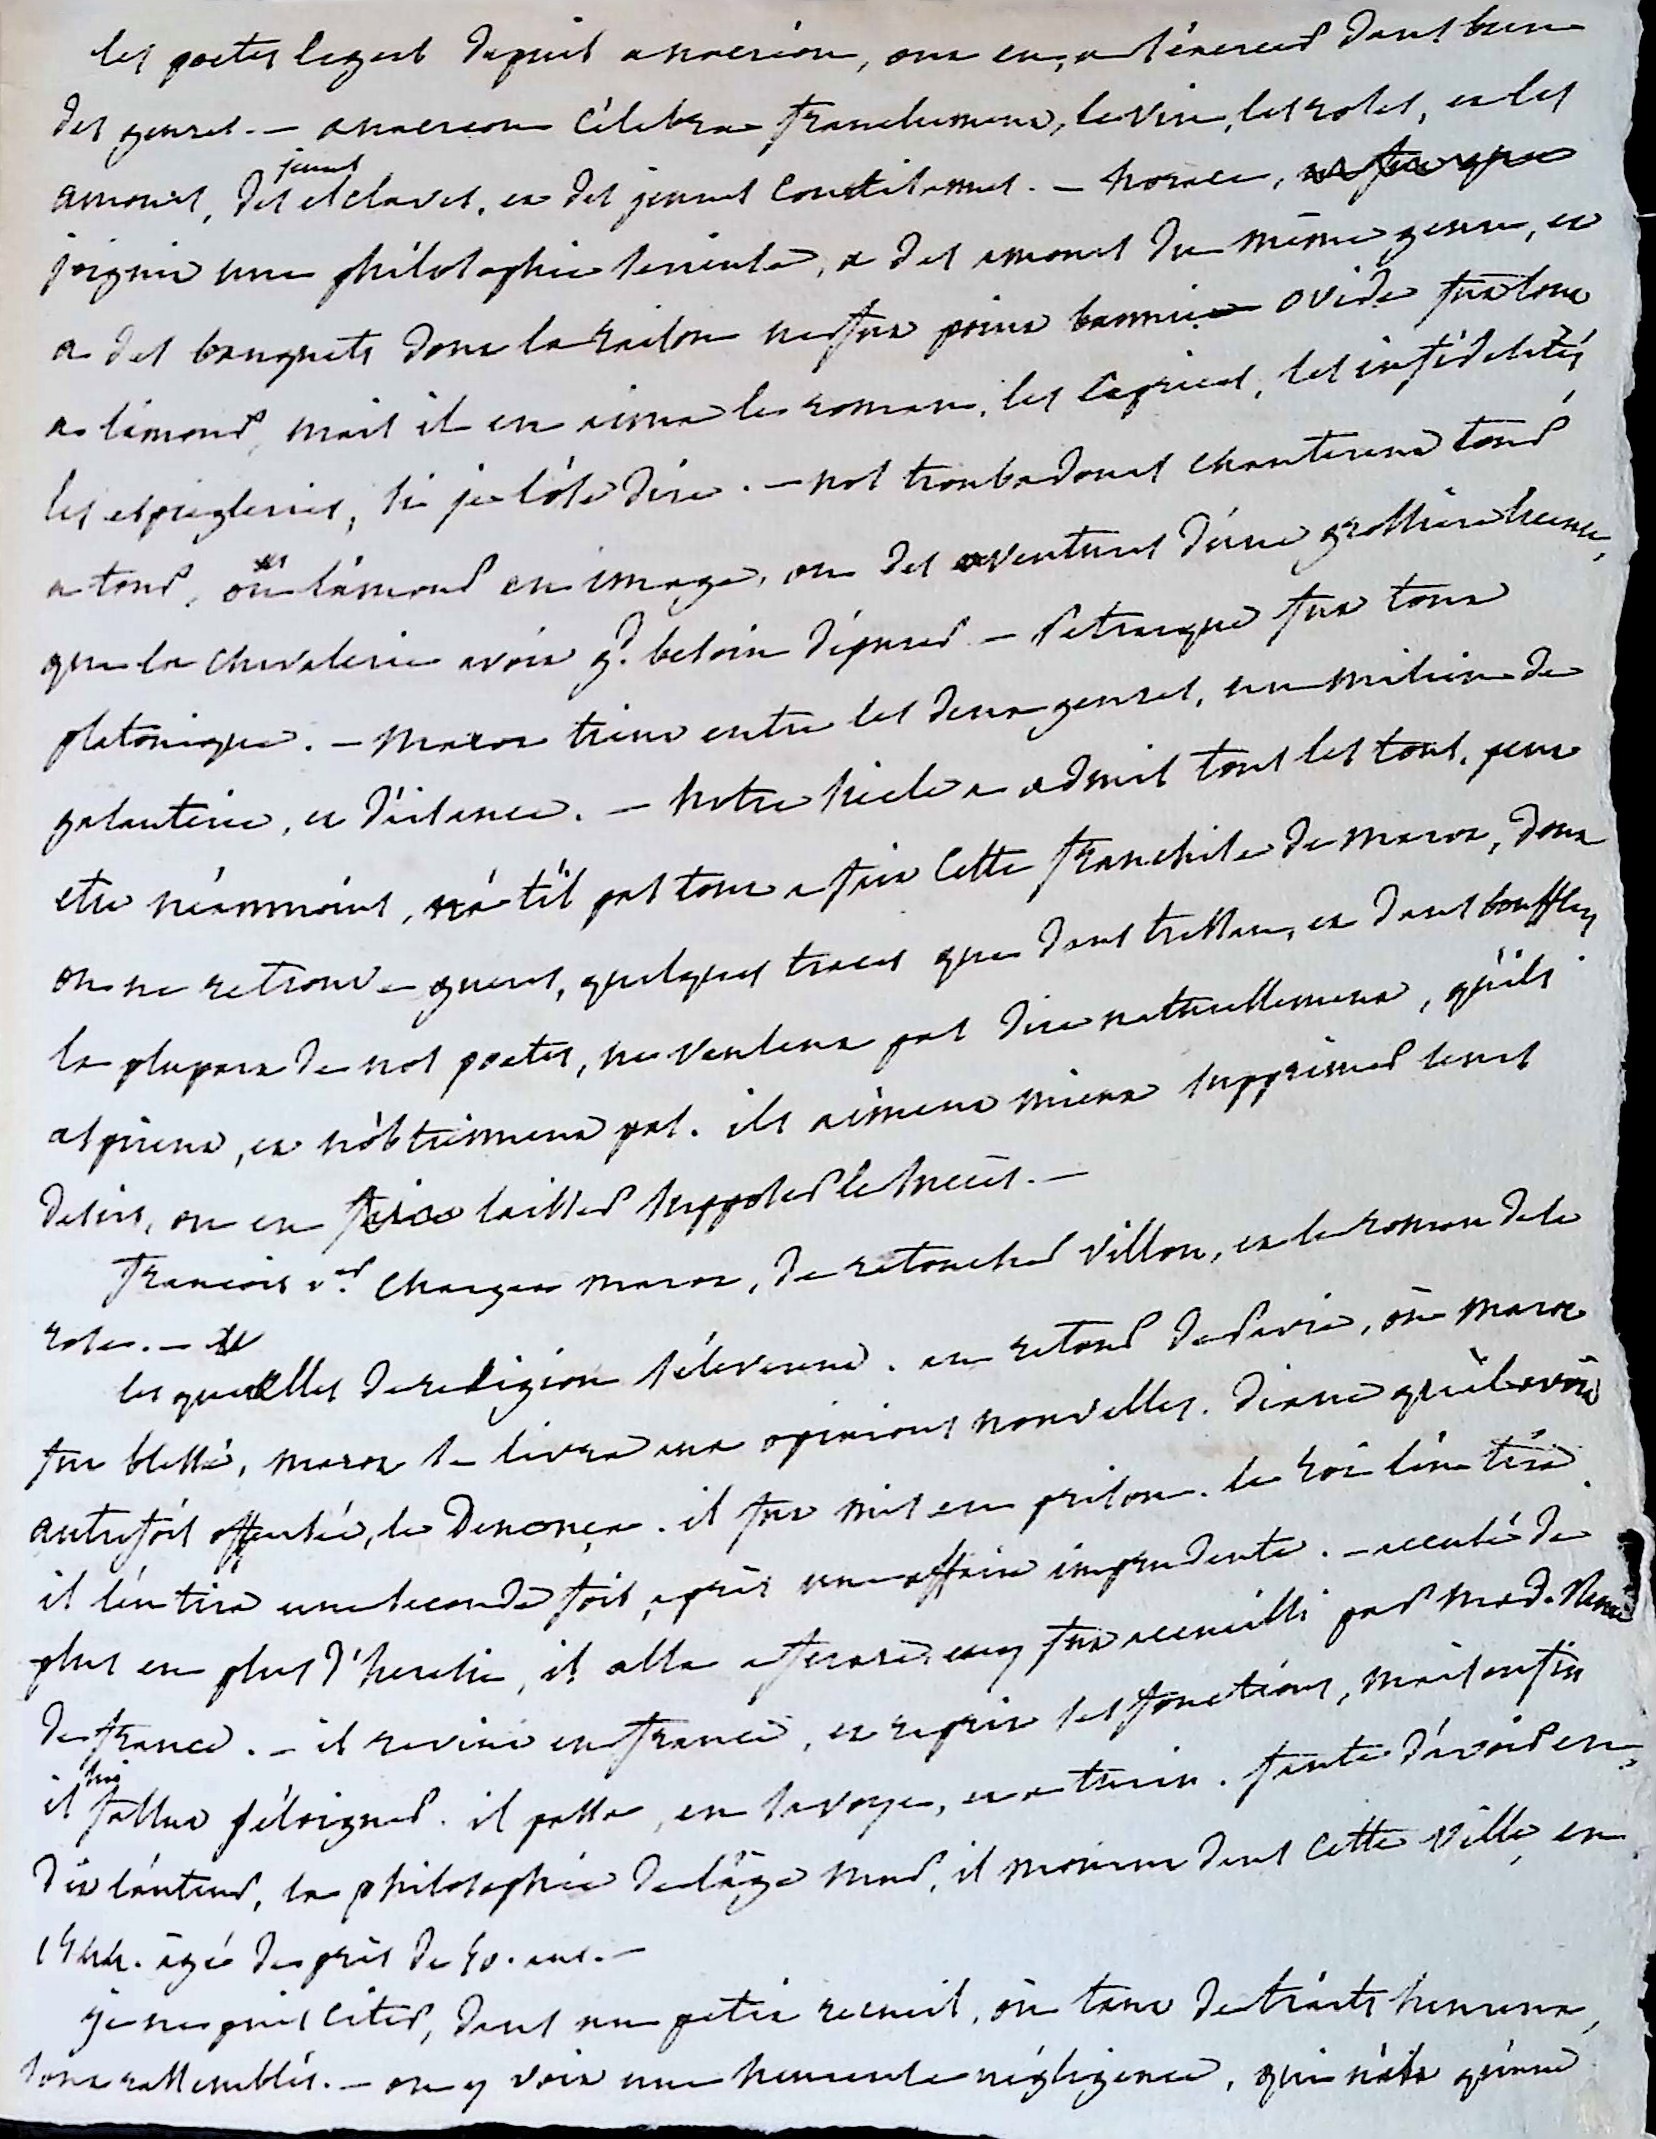 les poetes legers depuis anacréon, ont eu, a s'exercer dans bien
des genres. — anacreon célébra franchement, le vin, les roses, et les
amours, des jeunes esclaves, et des jeunes courtisannes. — horace,
joignit une philosophie serieuse, a des amours du même genre, et
a des banquets dont la raison ne fut point bannie. ovide fut tout
a l'amour, mais il en aima le roman, les caprices, les infidelités,
les espiegleries, si je l'ose dire. — nos troubadours chanterent tour
a tour, ou l'amour en image, ou des aventures d'une grossiere licence,
que la chevalerie avoit gd. besoin d'épurer — Petrarque fut tout
platonique. — Marot tient entre les deux genres, un milieu de
galanterie, et d'aisance. — Notre siecle a admis tous les tons, peut
etre néanmoins, n'a-t-il pas tout a fait cette franchise de marot, dont
on ne retrouve gueres, quelques traces que dans tressan, et dans boufflers
la plupart de nos poetes, ne veulent pas dire naturellement, qu'ils
aspirent, et n'obtiennent pas. ils aiment mieux supprimer leurs
desirs, ou en laisser supposer le succès. —
françois 1er chargea marot, de retoucher villon, et le roman de la
rose. —
les querelles de religion s'éleverent. au retour de Pavie, où marot
fut blessé, marot se livra aux opinions nouvelles. diane qu'il avoit
autrefois offensée, le denonça. il fut mis en prison. le roi l'en tira
il l'en tira une seconde fois, après une affaire imprudente. — accusé de
plus en plus d'heresie, il alla a ferrare, et y fut accueilli par Mad. Renée
de france. — il revint en france, et reprit ses fonctions, mais enfin
il lui fallut s'éloigner. il passa, en savoye, et a turin. faute d'avoir eu,
dit l'auteur, la philosophie de l'âge mur, il mourut dans cette ville, en
1544. agé de près de 50. ans. —
je ne puis citer, dans un petit recueil, où tant de traits heureux,
sont rassemblés. — on y voit une heureuse négligence, qui n'est qu'une